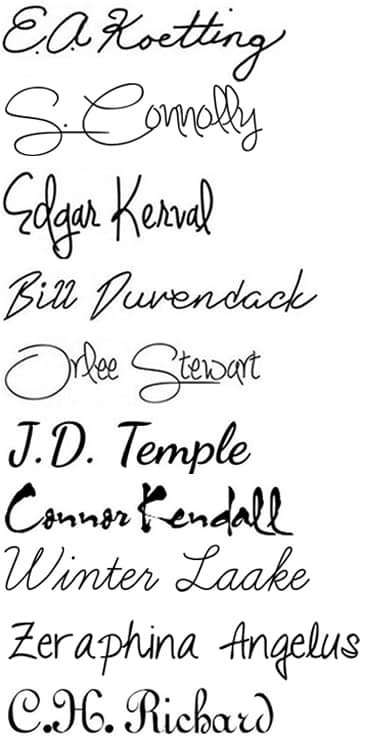 E.A. Koetting
S. Connolly
Edgar Kerval
Bill Duvendack
Orlee Stewart
J.D. Temple
Connor Kendall
Winter Laake
Zeraphina Angelus
C.H. Richard